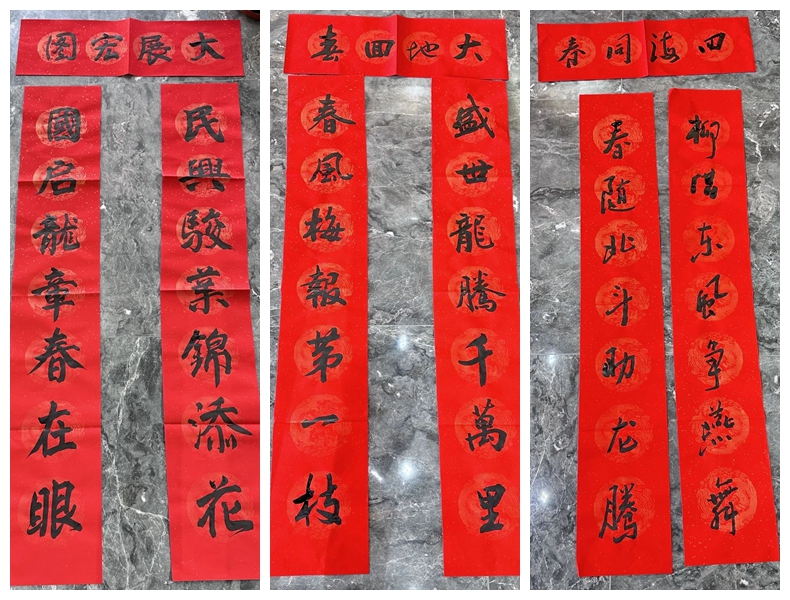 大展宏图
民興駿業錦添花
國启龍章春在眼
大地回春
盛世龍騰千萬里
春風梅報第一枝
四海同春
柳借东風争燕舞
春随北斗助龙腾